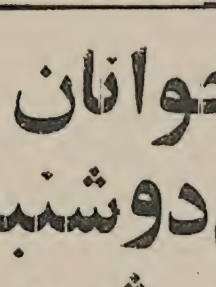 جوانان
دوشنبه